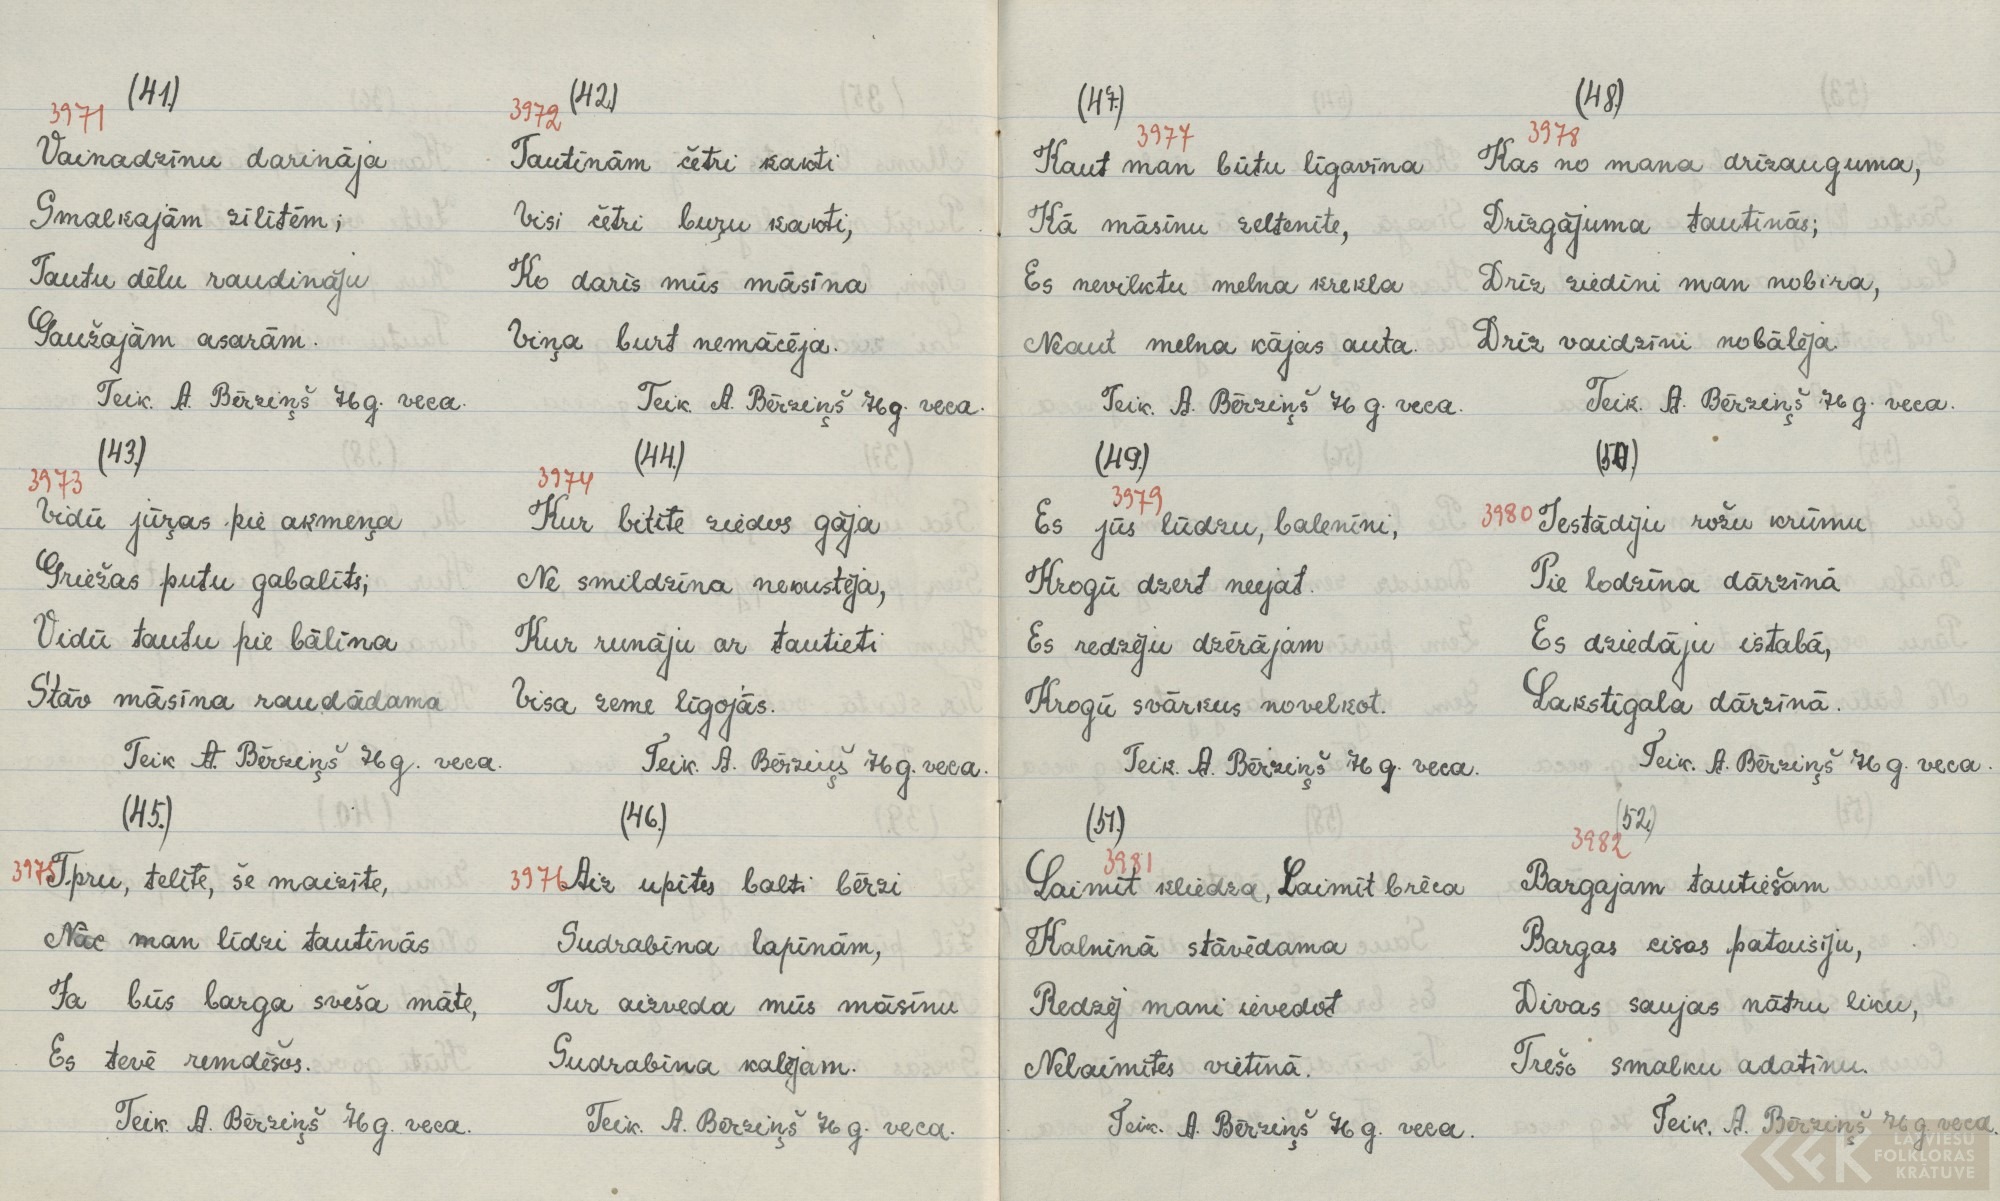 (41.)
3971
Vainadzīnu darināja
Smalkajām zīlītēm;
Tautu dēlu raudināju
Gaužajām asarām.
Teik. A. Bērziņš 76 g. veca.
(42.)
3972
Tautīnām četri kakti
Visi četri buŗu kakti,
Ko darīs mūs māsīna
Viņa burt nemācēja.
Teik. A. Bērziņš 76 g. veca.
(43.)
3973
Vidū jūŗas pie akmeņa
Griežas putu gabalīts;
Vidū tautu pie bālīna
Stāv māsīna raudādama
Teik A. Bērziņš 76 g. veca.
(44.)
3974
Kur bitīte ziedos gāja
Ne smildzīna nekustēja,
Kur runāju ar tautieti
Visa zeme līgojās.
Teik. A. Bērziņš 76 g. veca.
(45.)
3975 Tpru, telīte, še maizīte,
Nāc man līdzi tautīnās
Ja būs barga sveša māte,
Es tevē remdēšos.
Teik. A. Bērziņš 76 g. veca.
(46.)
3976 Aiz upītes balti bērzi
Sudrabīna lapīnām,
Tur aizveda mūs māsīnu
Sudrabīna kalējam.
Teik. A. Bērziņš 76 g. veca.
(47.)
3977
Kaut man būtu līgavīna
Kā māsīnu zeltenīte,
Es nevilktu melna krekla
Neaut melna kājas auta.
Teik. A. Bērziņš 76 g. veca.
(48.)
3978
Kas no mana drīzauguma,
Drīzgājuma tautīnās;
Drīz ziedīni man nobira,
Drīz vaidzīni nobālēja.
Teik. A. Bērziņš 76 g. veca.
(49.)
3979
Es jūs lūdzu, balenīni,
Krogū dzert neejat.
Es redzēju dzērājam
Krogū svārkus novelkot.
Teik. A. Bērziņš 76 g. veca.
(50.)
3980 Iestādīju rožu krūmu
Pie lodzīna dārzīnā
Es dziedāju istabā,
Lakstīgala dārzīnā.
Teik. A. Bērziņš 76 g. veca.
(51.)
3981
Laimīt kliedza, Laimīt brēca
Kalnīnā stāvēdama
Redzēj mani ievedot
Nelaimītes vietīnā.
Teik. A. Bērziņš 76 g. veca.
(52.)
3982
Bargajam tautiešam
Bargas cisas pataisīju,
Divas saujas nātru liku,
Trešo smalku adatīnu.
Teik. A. Bērziņš 76 g. veca.
LATVIEŠU
FOLKLORAS
KRĀTUVE